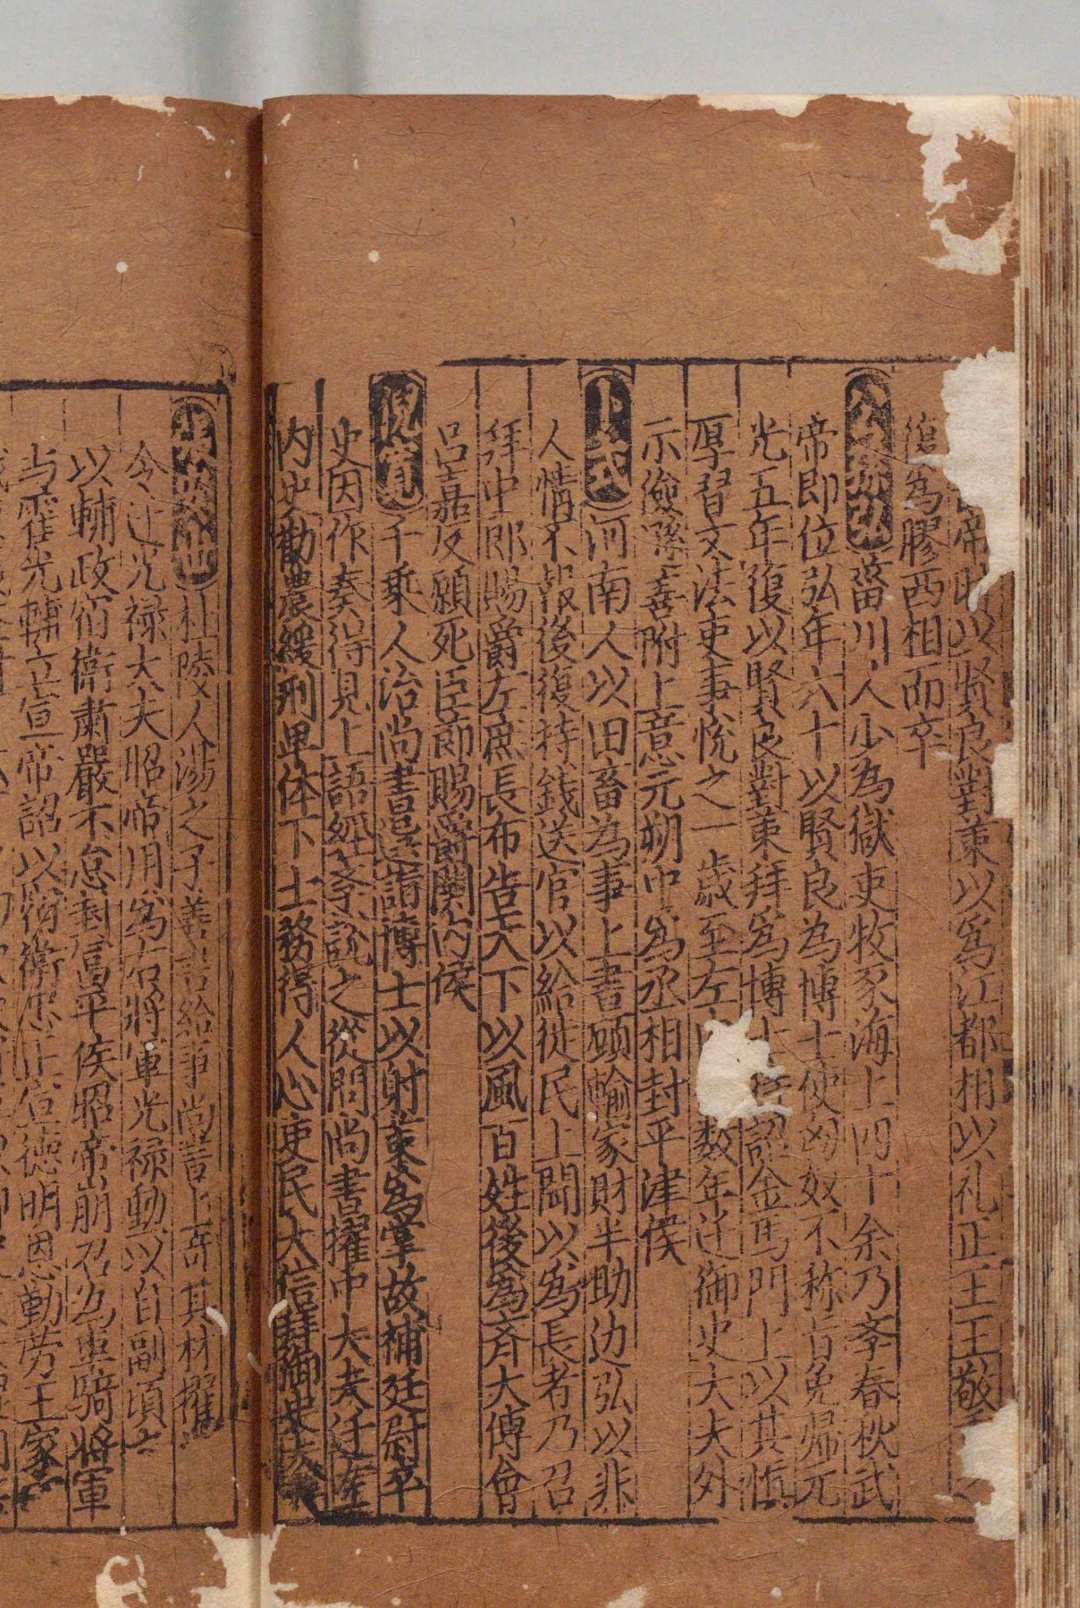 帝時以賢良對策以為江都相以礼正王王敬
復為膠西相而卒
公孫弘菑川人少為獄吏牧豕海上四十余乃李春秋武
帝即位弘年六十以賢良為博士使匈奴不称旨免歸元
光五年復以賢良對策拜為博士待詔金馬門上以其慎
厚習文法吏事悅之一歲至左内数年迁御史大夫外
示儉孫善附上意元朔中為丞相封平津侯
卜式河南人以田畜為事上書願輸家財半助边弘以非
人情不報後復持錢送官以給徙民上聞以為長者乃召
拜中郎賜爵左庶長布告天下以風百姓後為齐大傅會
呂嘉反願死臣節賜爵関内侯
倪寬千乘人治尚書詣博士以射策為掌故補廷尉卒
史因作奏得見上語經孝説之從問尚書擢中大夫迁左
内史勸農緩刑卑体下士務得人心吏民大信拜御史大夫
張安世杜陵人湯之子善書給事尚書上奇其材擢
令迁光禄大夫昭帝用為右將軍光禄勳以自副頃之
以輔政宿衛肅嚴不怠封富平侯昭帝崩召為車騎將軍
与霍光輔立宣帝詔以宿衛忠正宣德明恩勤劳王家